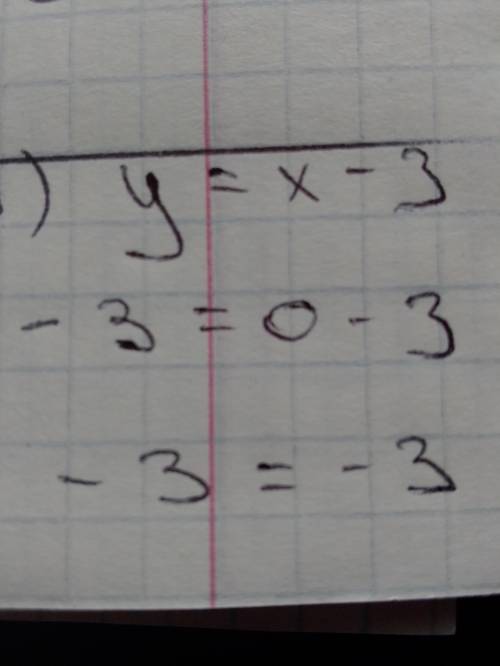 ) y = x - 3
- 3 = 0 - 3
- 3 = - 3